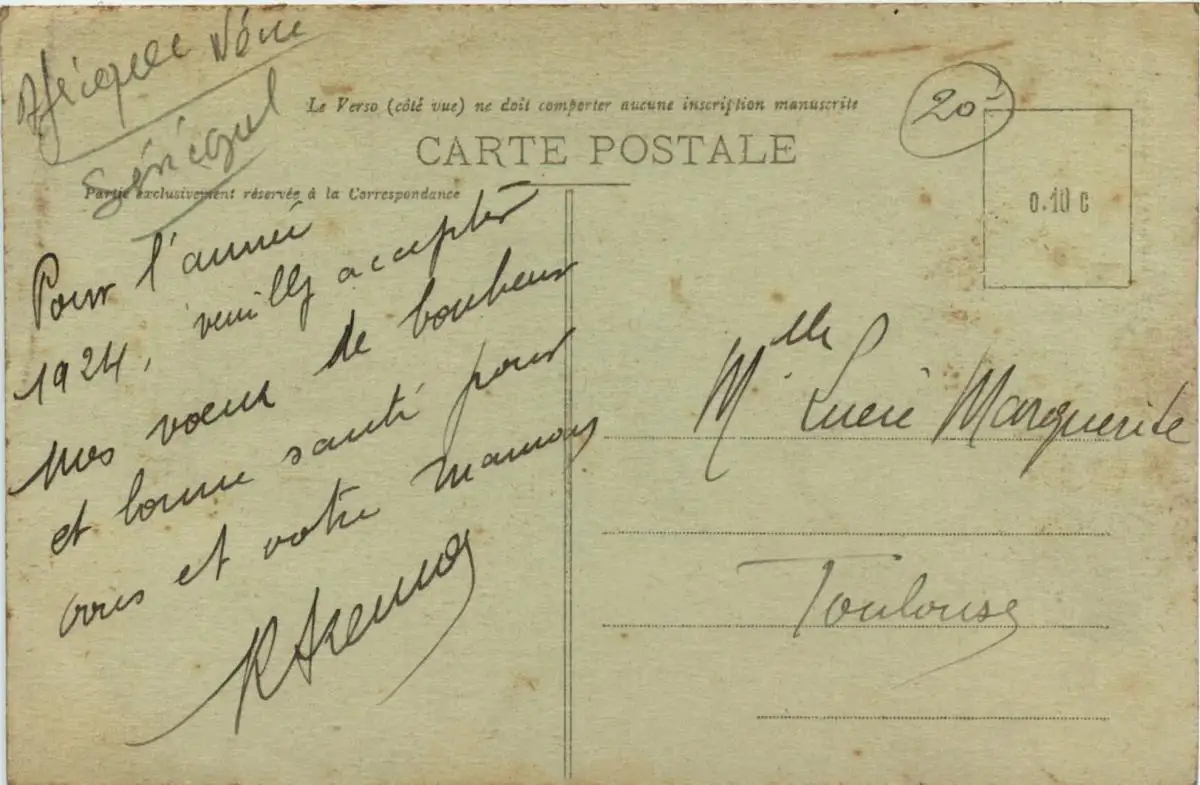 Afrique Noire
Sénégal
Le Verso (côté vue) ne doit comporter aucune inscription manuscrite
20
CARTE POSTALE
0.10 C
Partie exclusivement réservée à la Correspondance
Pour l'année
1924, veuillez accepter
mes vœux de bonheur
et bonne santé pour
vous et votre maman
Mlle Lucie Marguerite
Toulouse